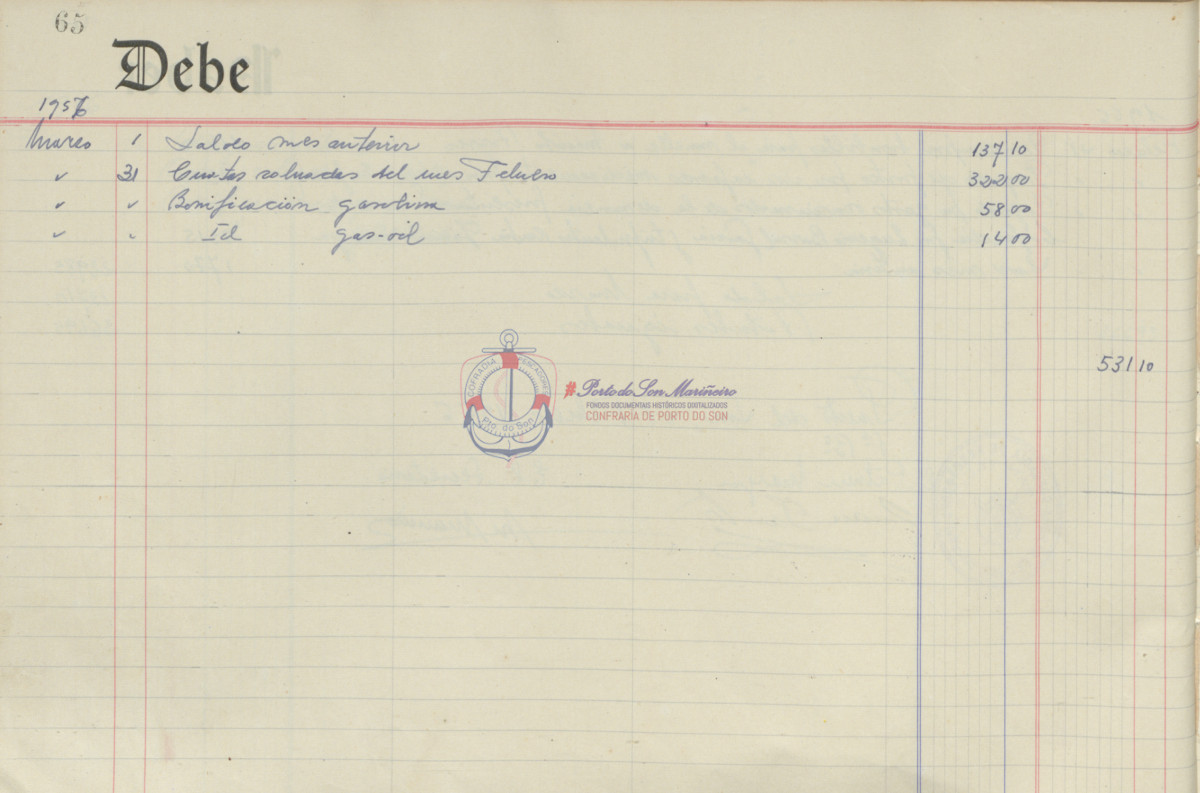 65
Debe
1956
Marzo 1 Saldo mes anterior 137 10
" 31 Cuotas cobradas del mes Febrero 322 00
" " Bonificación gasolina 58 00
" " Id gas-oil 14 00
531 10
COFRADIA PESCADORES
Pto. do Son
#Porto do Son Mariñeiro
FONDOS DOCUMENTAIS HISTÓRICOS DIXITALIZADOS
CONFRARIA DE PORTO DO SON